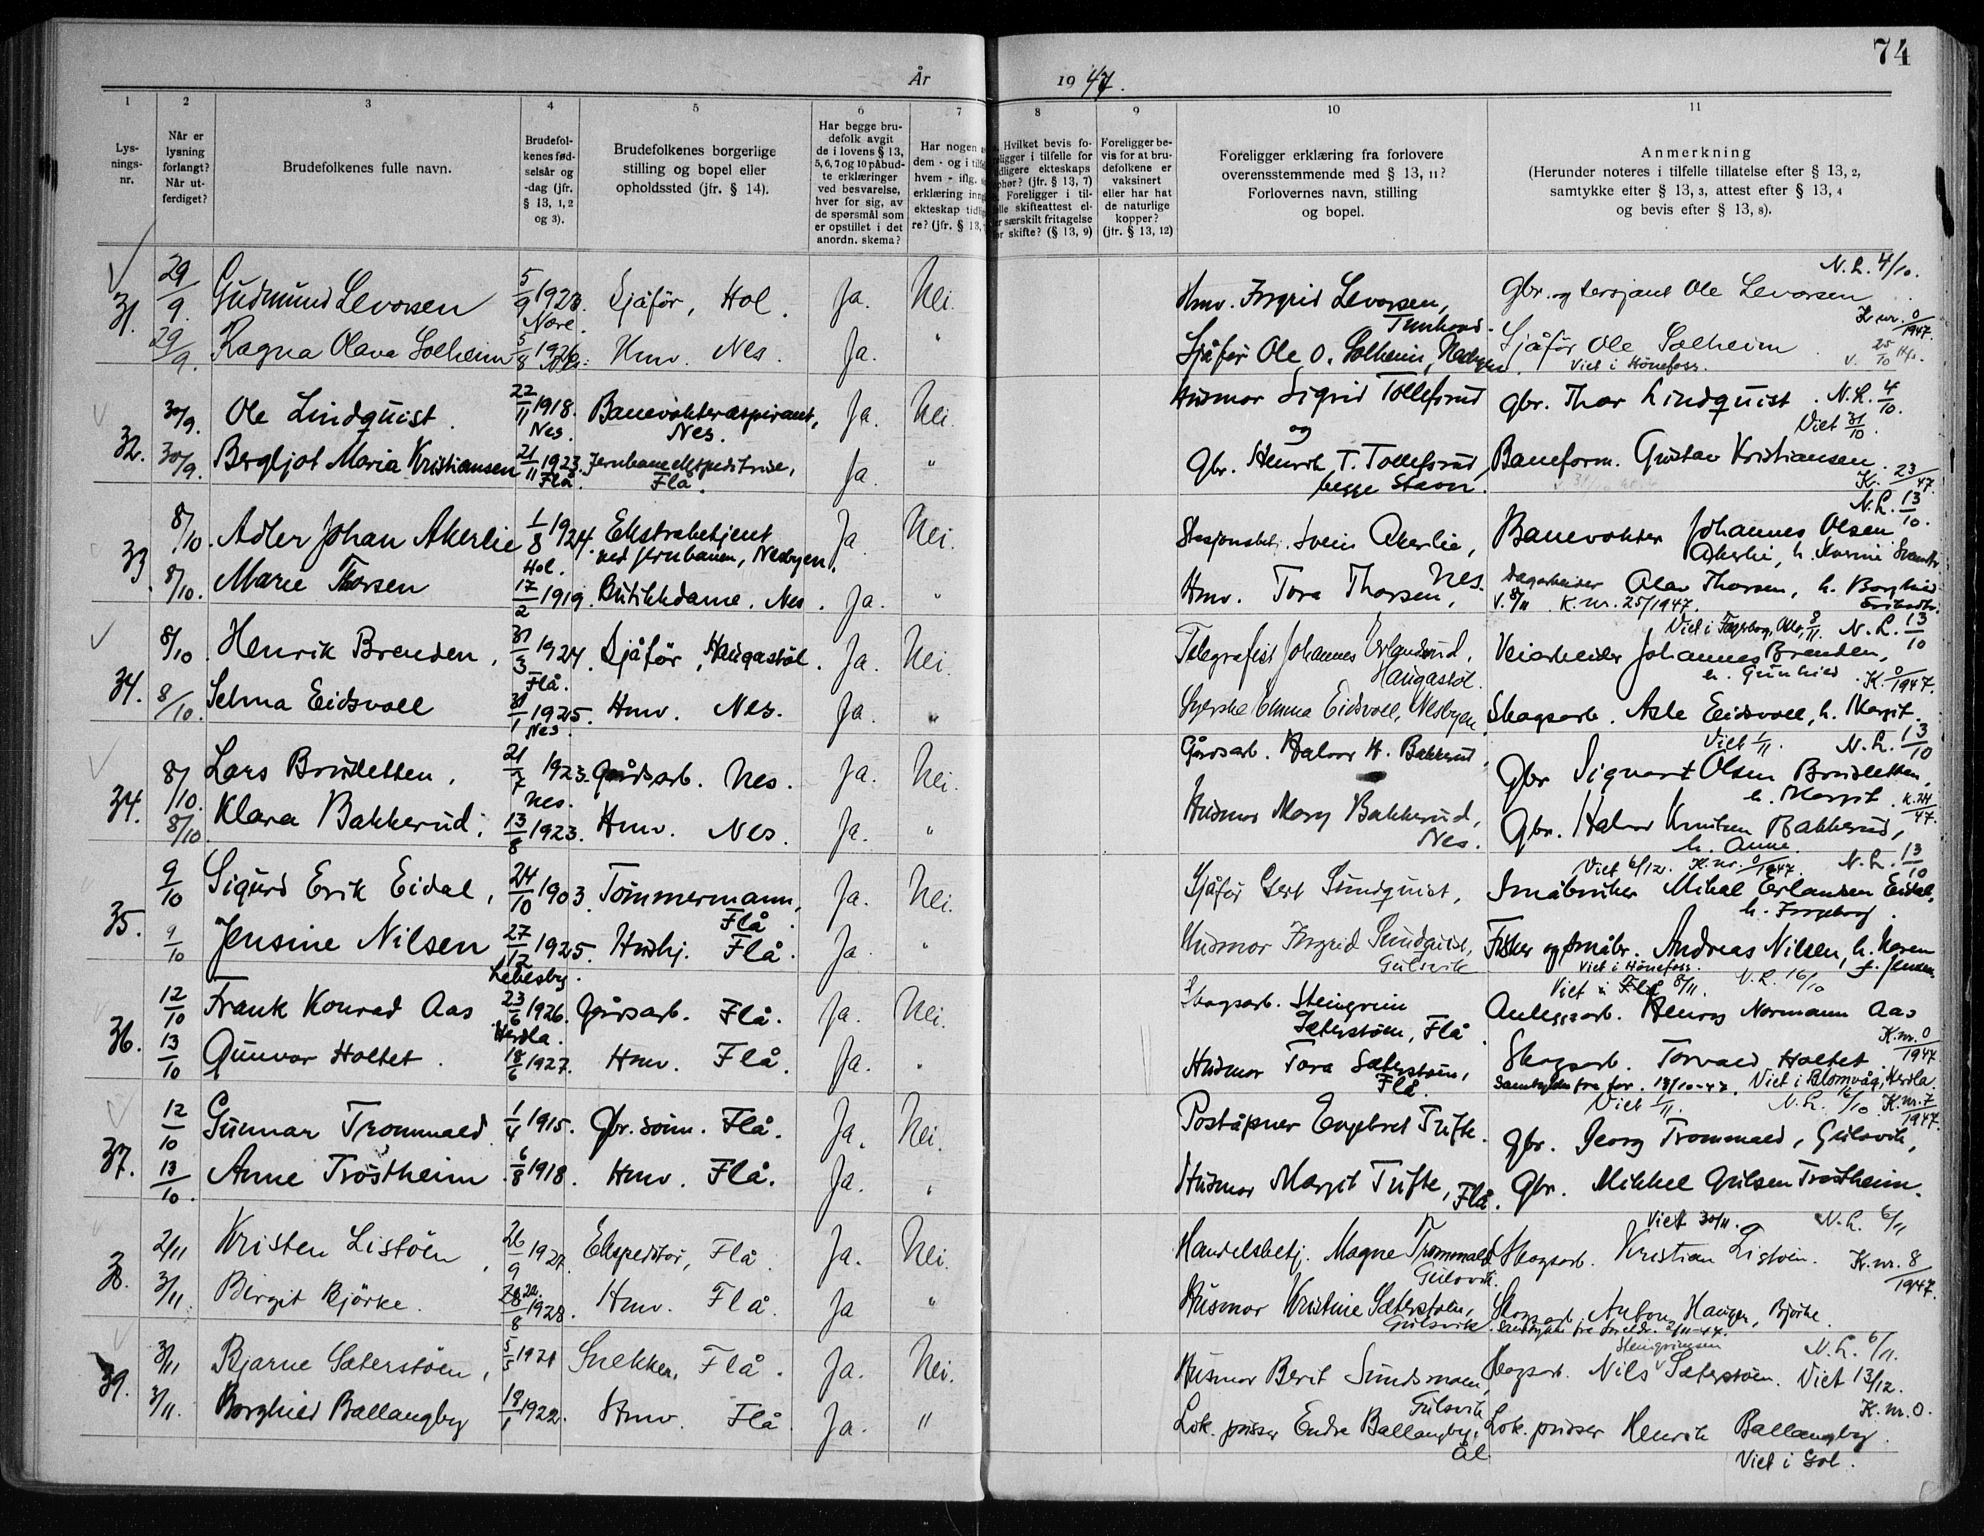 74
År 1947.
1 2 3 4 5 6 7 8 9 10 11
Lys-
nings-
nr.
Når er
lysning
forlangt?
Når ut-
ferdiget?
Brudefolkenes fulle navn.
Brudefol-
kenes fød-
selsår og
-dag (jfr.
§ 13, 1, 2
og 3).
Brudefolkenes borgerlige
stilling og bopel eller
opholdssted (jfr. § 14).
Har begge bru-
defolk avgitt
de i lovens § 13,
5, 6, 7 og 10 påbud-
te erklæringer
ved besvarelse,
hver for sig, av
de spørsmål som
er opstillet i det
anordn. skema?
Har nogen
dem - og i tilf
hvem - iflg.
erklæring inn
ekteskap tidl
re? (jfr. § 13,
Hvilket bevis fo-
religger i tilfelle for
tidligere ekteskaps
ophør? (jfr. § 13, 7)
Foreligger i til-
elle skifteattest el-
er særskilt fritagelse
or skifte? (§ 13, 9)
Foreligger be-
vis for at bru-
defolkene er
vaksinert
eller har hat
de naturlige
kopper?
(jfr. § 13, 12)
Foreligger erklæring fra forlovere
overensstemmende med § 13, 11?
Forlovernes navn, stilling
og bopel.
Anmerkning
(Herunder noteres i tilfelle tillatelse efter § 13, 2,
samtykke efter § 13, 3, attest efter § 13, 4
og bevis efter § 13, 8).
N. L. 4/10.
31. 29/9. Gudmund Levorsen 5/9 1923. Sjåfør, Hol. Ja. Nei. Hmv. Ingrid Levorsen, Gbr. og lensjant Ole Levorsen
Nore. Tunhovd. K. nr. 0/1947.
29/9. Ragna Olava Solheim 5/8 1926. Hmv. Nes. Ja. " Sjåfør Ole O. Solheim, Nesbyen. Sjåfør Ole Solheim. v. 25/10
Viet i Hønefoss.
32. 30/9. Ole Lindquist. 22/11 1918. Banevokteraspirant, Ja. Nei. Husmor Sigrid Tollefsrud Gbr. Thor Lindquist. N. L. 4/10.
Nes. Nes. og Viet 31/10.
30/9. Bergljot Maria Kristiansen 21/11 1923. Jernbaneekspeditrise, Ja. " Gbr. Henrik T. Tollefsrud, Baneform. Gustav Kristiansen.
Flå. Flå. begge Stavn. K. 23/47.
N. L. 13/10.
33. 8/10. Adler Johan Akerlie 1/8 1924. Ekstrabetjent Ja. Nei. Stasjonsbetj. Svein Akerlie, Banevokter Johannes Olsen
Hol. ved jernbanen, Nesbyen. Akerlie, h. Karine
8/10. Marie Thorsen 17/2 1919. Butikkdame. Nes. Ja. " Hmv. Tora Thorsen, Nes. Dagarbeider Olav Thorsen, h. Borghild
v. 8/11. K. nr. 25/1947.
Viet i Fagerborg, Oslo, 8/11. N. L. 13/10
34. 8/10. Henrik Brenden, 31/3 1924. Sjåfør, Haugastøl. Ja. Nei. Telegrafist Johannes Erlandsrud, Veiarbeider Johannes Brenden,
Flå. Haugastøl. h. Gunhild. K. 0/1947.
8/10. Selma Eidsvoll 31/1 1925. Hmv. Nes. Ja. " Syerske Emma Eidsvoll, Nesbyen. Skogsarb. Asle Eidsvoll, h. Margit.
Nes. Viet 1/11. N. L. 13/10
34. 8/10. Lars Brudeletten, 21/7 1923. Gårdsarb. Nes. Ja. Nei. Gårdsarb. Halvor H. Bakkerud, Gbr Sigvart Olsen Brudeletten,
Nes. h. Margit. K. 24/47.
8/10. Klara Bakkerud. 13/8 1923. Hmv. Nes. Ja. " Husmor Mary Bakkerud, Nes. Gbr. Halvor Knutsen Bakkerud,
h. Anne.
Viet 6/12. K. nr. 0/1947. N. L. 13/10
35. 9/10 Sigurd Erik Eidal, 24/10 1903. Tømmermann, Ja. Nei. Sjåfør Gert Sundquist, Småbruker Mikal Erlandsen Eidal,
Flå. h. Ingeborg.
9/10 Jensine Nilsen 27/12 1925. Hushj. Flå. Ja " Husmor Ingrid Sundquist, Fisker og småbr. Andreas Nilsen, h. Karen
Lebesby. Gulsvik Viet i Hønefoss.
Viet i Flå 8/11. N. L. 16/10
36. 12/10 Frank Konrad Aas 23/6 1926. Gårdsarb. Flå. Ja. Nei. Skogsarb. Steingrim Anleggsarb. Henry Normann Aas
Herdla. Sæterstøen, Flå K. nr. 0/1947
13/10 Gunvor Holtet. 18/6 1927. Hmv. Flå. Ja. " Husmor Tora Sæterstøen, Skogsarb. Torvald Holtet.
Flå. Samtykke fra for. 13/10-47. Viet i Blomvåg, Herdla.
Viet 1/11. N. L. 16/10. K. nr. 7/1947.
37. 12/10 Gunnar Trommald. 1/4 1915. Gbr. sønn. Flå. Ja. Nei. Poståpner Engebret Tufte. Gbr. Georg Trommald, Gulsvik,
13/10. Anne Trøstheim. 6/8 1918. Hmv. Flå. Ja. " Husmor Margit Tufte, Flå. Gbr. Mikkel Gulsen Trøstheim.
Viet 30/11. N. L. 6/11
38. 2/11 Kristen Listøen, 26/9 1927. Ekspeditør, Flå. Ja. Nei. Handelsbetj. Magne Trommald Skogsarb. Kristian Listøen. K. nr. 8/1947.
Gulsvik.
3/11. Birgit Bjørke. 28/8 1928. Hmv. Flå. Ja " Husmor Kristine Sæterstøen, Skogsarb. Anton Haugen, Bjørke.
Gulsvik. Samtykke fra foreldr. 2/11-47.
Steingrimsen N. L. 6/11.
39. 3/11 Bjarne Sæterstøen, 5/5 1921 Snekker, Flå. Ja. Nei. Husmor Berit Sundsmoen, Skogsarb. Nils Sæterstøen. Viet 13/12.
Gulsvik K. nr. 0.
3/11. Borghild Ballangby 18/1 1922. Hmv. Flå Ja. " Lok. pusser Endre Ballangby, Lok. pusser Henrik Ballangby.
Ål. Viet i Gol.